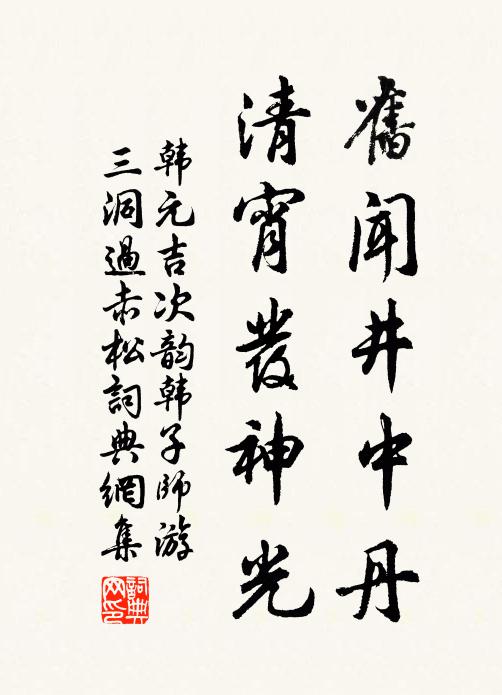 舊聞井中丹
清宵發神光
韩元吉次韵韩子师游
三洞過赤松詞典網集
詞典网印